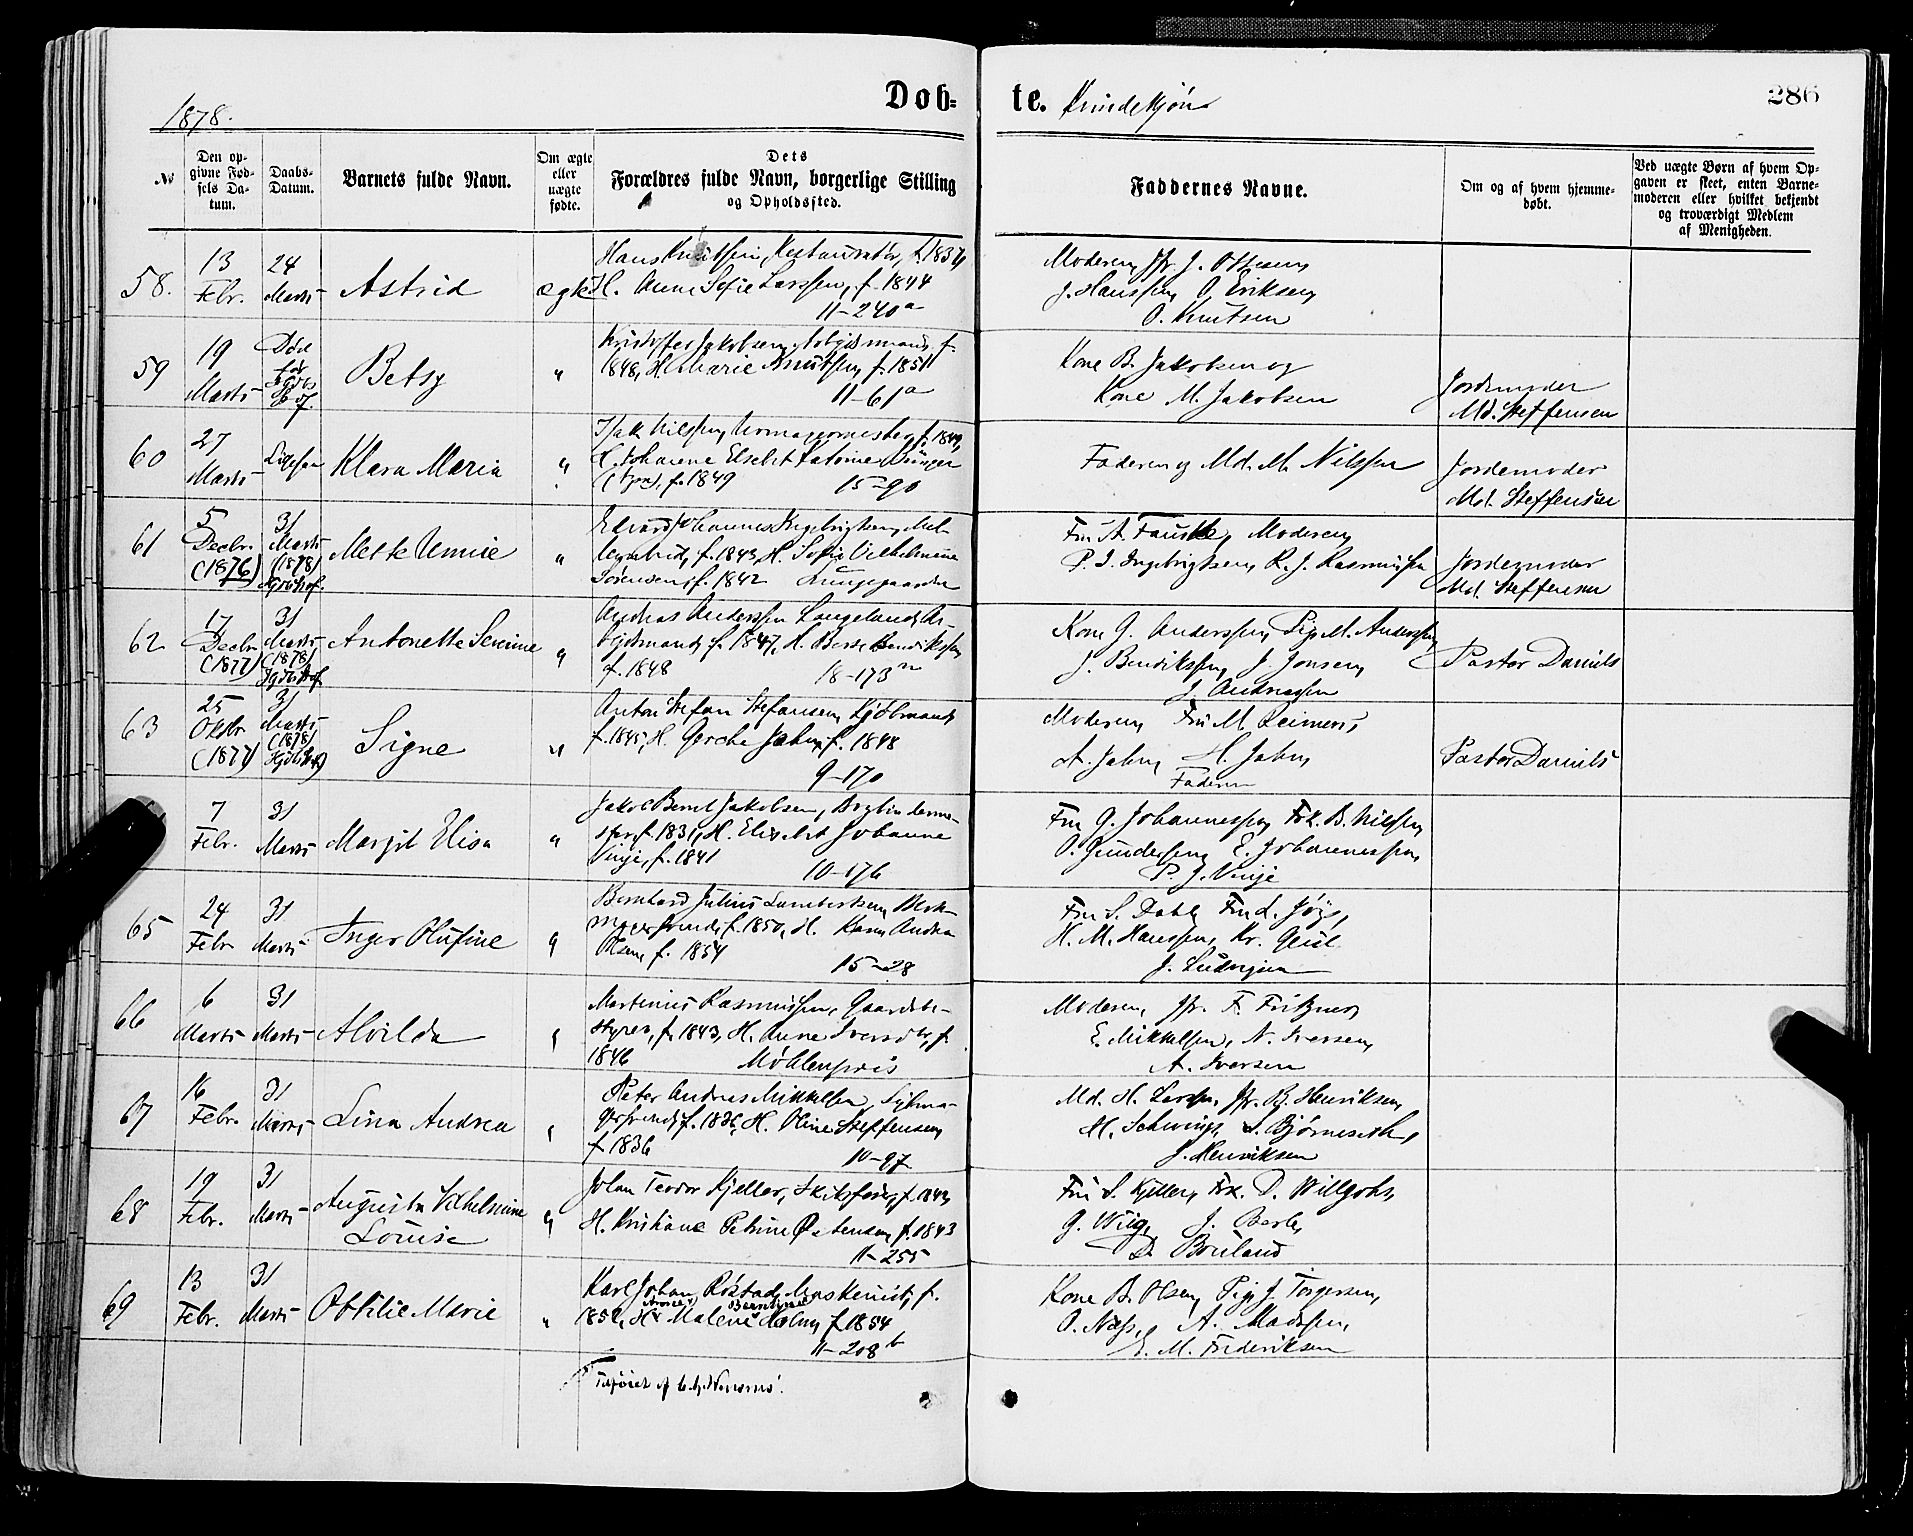 1878.
Døb-
te. Kvindekjøn
286
№
Den op-
givne Fød-
sels Da-
tum.
Daabs-
Datum.
Barnets fulde Navn.
Om ægte
eller
uægte
fødte.
Dets
Forældres fulde Navn, borgerlige Stilling
og Opholdssted.
Faddernes Navne.
Om og af hvem hjemme-
døbt.
Ved uægte Børn af hvem Op-
gaven er skeet, enten Barne-
moderen eller hvilket bekjendt
og troværdigt Medlem
af Menigheden.
58.
13
Febr.
24
Marts
Astrid
ægte
Hans Knutssen, Restauratør, f. 1834
H. Anne Sofie Larssen, f. 1844
11-240a
Moderen, Jfr. J. Ottesen,
J. Hanssen, O. Eriksen,
O. Knutsen
59
19
Marts
Død
før
Betsy
"
Kristoffer Jakobsen, Arbeidsmand, f.
1848, H. Marie Knutssen, f. 1851
11-61a
Kone B. Jakobsen og
Kone M. Jakobsen
Jordemoder
Md. Steffensen
60
27
Marts
Ligesaa
Klara Maria
"
Isak Nilssen, f. 1849,
H. Johanne Elsebet Katrine Bünger
f. 1849 15-90
Faderen og Md. M. Nilssen
Jordemoder
Md. Steffensen
61
5
Decbr.
(1876)
31
Marts
(1878)
Mette Unnie
"
Edvard Johannes Ingebrigtsen,
f. 1843, H. Sofie Vilhelmine
Sørensen, f. 1842 Lungegaarden
Fru A. Fauske, Moderen,
P. J. Ingebrigtsen, R. J. Rasmussen
Jordemoder
Md. Steffensen
62
17
Decbr.
(1877)
31
Marts
(1878)
Antonette Severine
"
Andreas Anderssen Langeland, Ar-
beidsmand, f. 1847, H. Berte Bendikssen,
f. 1848 18-173
Kone G. Anderssen, Pige M. Anderssen,
J. Bendikssen, J. Jonsen,
J. Andreassen
Pastor Daniels
63
25
Oktbr.
(1877)
31
Marts
(1878)
Signe
"
Anton Stefan Stefansen, Kjøbmand,
f. 1845, H. Gerche Jahn, f. 1848
9-170
Moderen, Fru M. Reimers,
A. Jahn, H. Jahn,
Faderen
Pastor Daniels
7
Febr.
31
Marts
Margit Elisa
"
Jakob Berent Jakobsen, Bogbinderme-
ster, f. 1831, H. Elisabet Johanne
Vinje, f. 1841
10-176
Fru G. Johannessen, Frk. B. Nilssen,
O. Gundersen, E. Johannessen,
P. J. Vinje
65
24
Febr.
31
Marts
Inger Olufine
"
Bernhard Julius Lambertsen, Blok-
magersvend, f. 1850, H. Karen Andrea
Olsen, f. 1854
15-28
Fru S. Dahl,
H. M. Hanssen,
66
6
Marts
31
Marts
Alvilda
"
Martinus Rasmussen, Gaardsbe-
styrer, f. 1843, H. Anne Iversdtr, f.
1846 Møhlenpris
Moderen, Jfr. F. Fritzner,
E. Mikkelsen, N. Iversen,
A. Iversen
67
16
Febr.
31
Marts
Lina Andrea
"
Peter Andreas Mikkelsen, Seglma-
gersvend, f. 1836, H. Oline Steffensen,
f. 1836
10-97
Md. H. Larsen, Jfr. B. Henriksen,
J. Henriksen
68
19
Febr.
31
Marts
Augusta Vilhelmine
Louise
"
Johan Teodor Kjeller, f. 1842,
H. Kristiane Petrine Petersen, f. 1843
11-255
Fru S. Kjeller, Frk. D. Willgohs,
G. Wiig,
69
13
Febr.
31
Marts
Ottilie Marie
"
Karl Johan Røstad, Maskinist, f.
1852, H. Anne Malene Berntine Holm, f. 1854
11-208b
Kone B. Olsen, Pige J. Torgersen,
O. Næss, A. Madssen,
E. M. Frederiksen
Tilføiet af